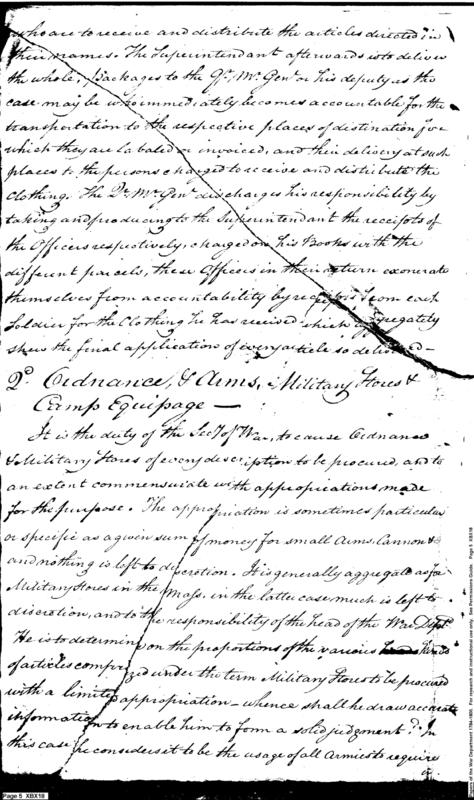 who are to receive and distribute the articles directed in
their names. The Superintendant afterwards is to deliver
the whole, Packages to the Qr. Mr. Genl. or his deputy as the
case may be who immediately becomes accountable for the
transportation to the respective places of distination for
which they are labaled or invoiced, and their delivery at such
places to the persons charged to receive and distribute the
Clothing. The Qr. Mr. Genl. discharges his responsibility by
taking and producing to the Superintendant the receipts of
the Officers respectively, charged on his Books with the
different parcels, these Officers in their return exonerate
themselves from accountability by receipts from each
Soldier for the Clothing he has received which aggregately
shew the final application of every article so delivered —
2d. Ordnance, & Arms, Military Stores &
Camp Equipage —
It is the duty of the Secy of War, to cause Ordnance
& Military Stores of every description to be procured, and to
an extent commensurate with appropriations made
for the purpose. The appropriation is sometimes particular
or specific as a given sum of money for small Arms, Cannon &c
and nothing is left to discretion. It is generally aggregate as for
Military Stores in the Mass. in the latter case much is left to
discretion, and to the responsibility of the head of the War Dept.
He is to determine on the proportions of the various kinds
of articles comprized under the term Military Stores to be procured
with a limited appropriation — whence shall he draw accurate
information to enable him to form a solid judgment? In
this case he considers it to be the usage of all Armies to require
a
Page 5 XBX18
Papers of the War Department 1784-1800. For research and instructional use only. See Permission Guide. Page 5 XBX18